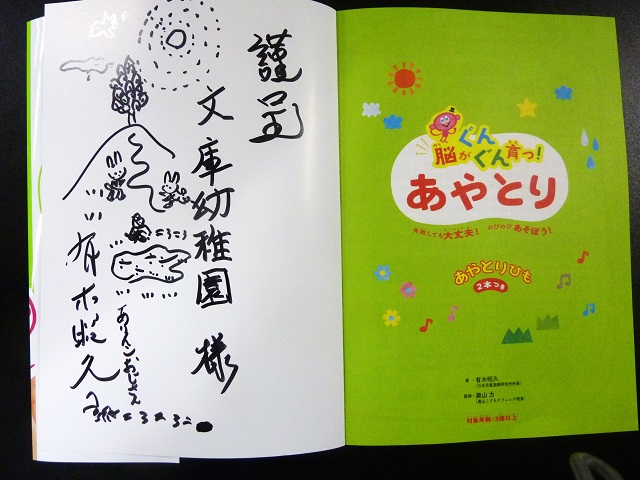 謹呈
文庫幼稚園 様
有木昭久
ぐん
脳が ぐん 育つ!
あやとり
失敗しても大丈夫! のびのび あそぼう!
あやとりひも
2本つき
著 有木昭久
監修 奥山 力
対象年齢:3歳以上